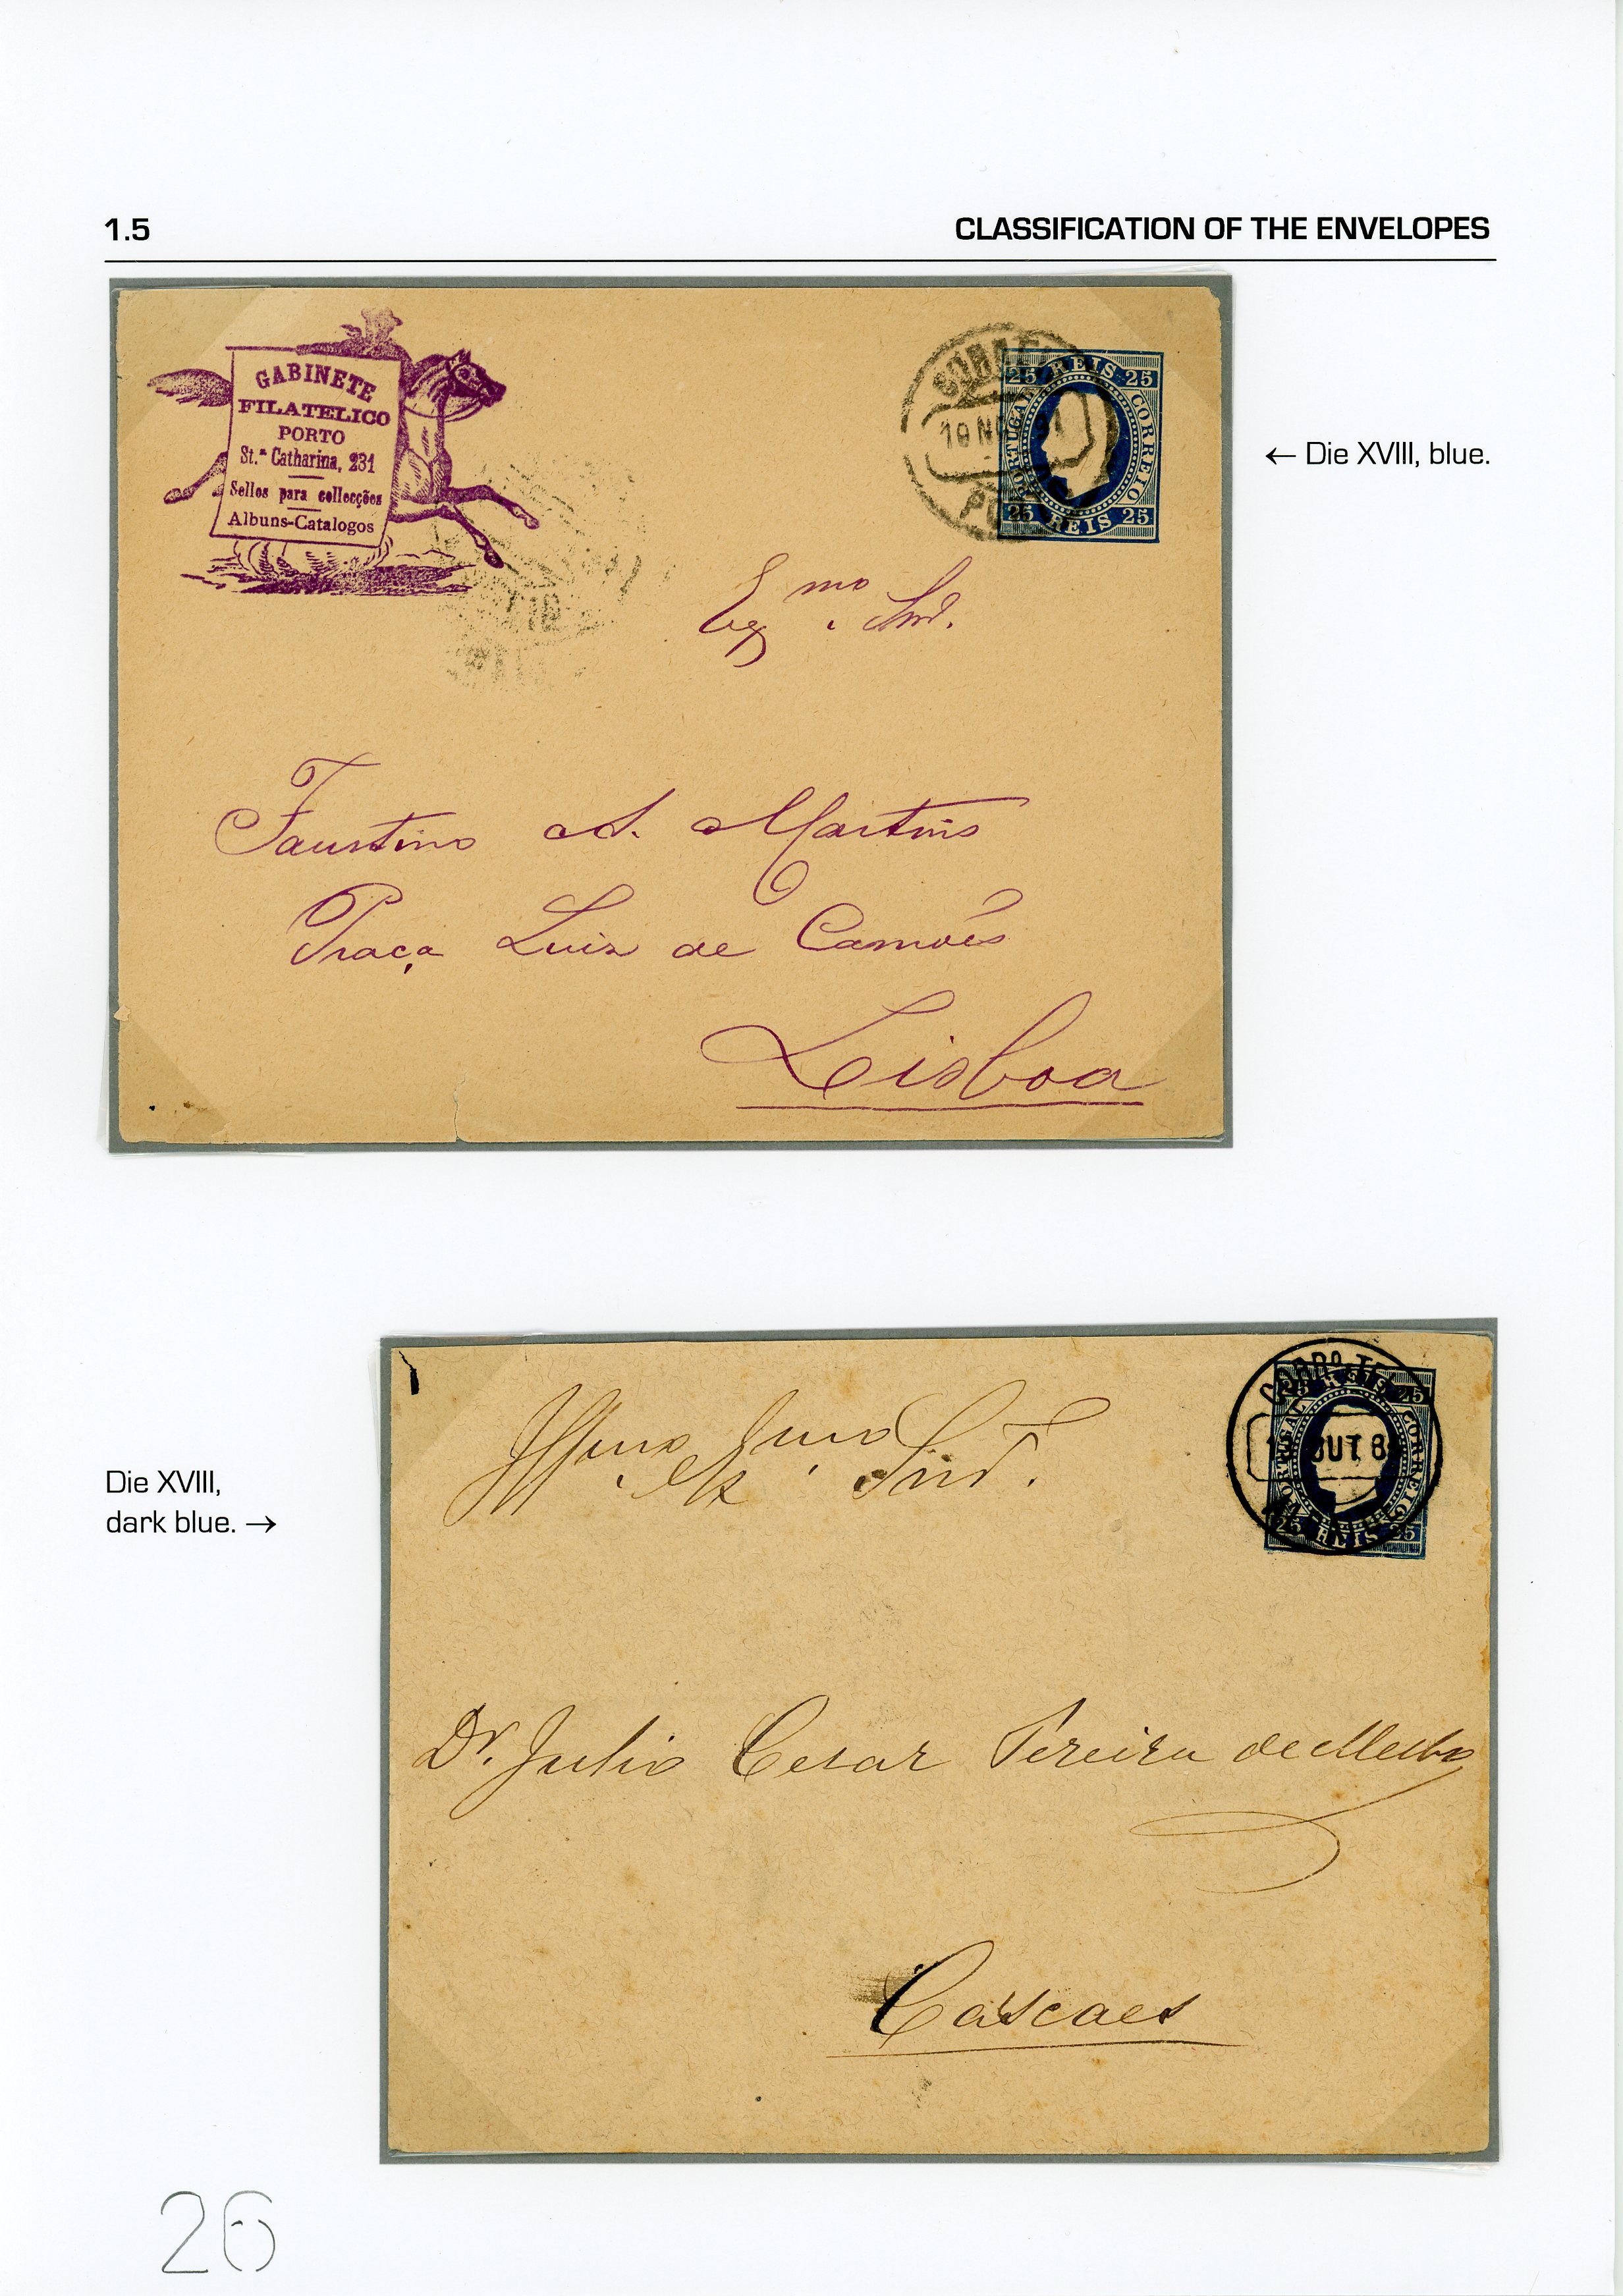 1.5
CLASSIFICATION OF THE ENVELOPES
GABINETE
FILATELICO
PORTO
St.ª Catharina, 231
Sellos para collecções
Albuns-Catalogos
25 REIS 25
PORTUGAL
CORREIO
25 REIS 25
← Die XVIII, blue.
Snr.
Faustino A. Martins
Praça Luiz de Camões
Lisboa
Die XVIII,
dark blue. →
25 REIS 25
PORTUGAL
CORREIO
25 REIS 25
OUT 8
Snr.
Dr. Julio Cesar Pereira de Mello
Cascaes
26